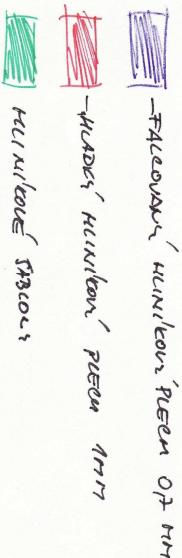 -FALCOVANÝ HLINÍKOVÝ PLECH 0,7 MM
-HLADKÝ HLINÍKOVÝ PLECH 1MM
HLINÍKOVÉ ŠABLONY